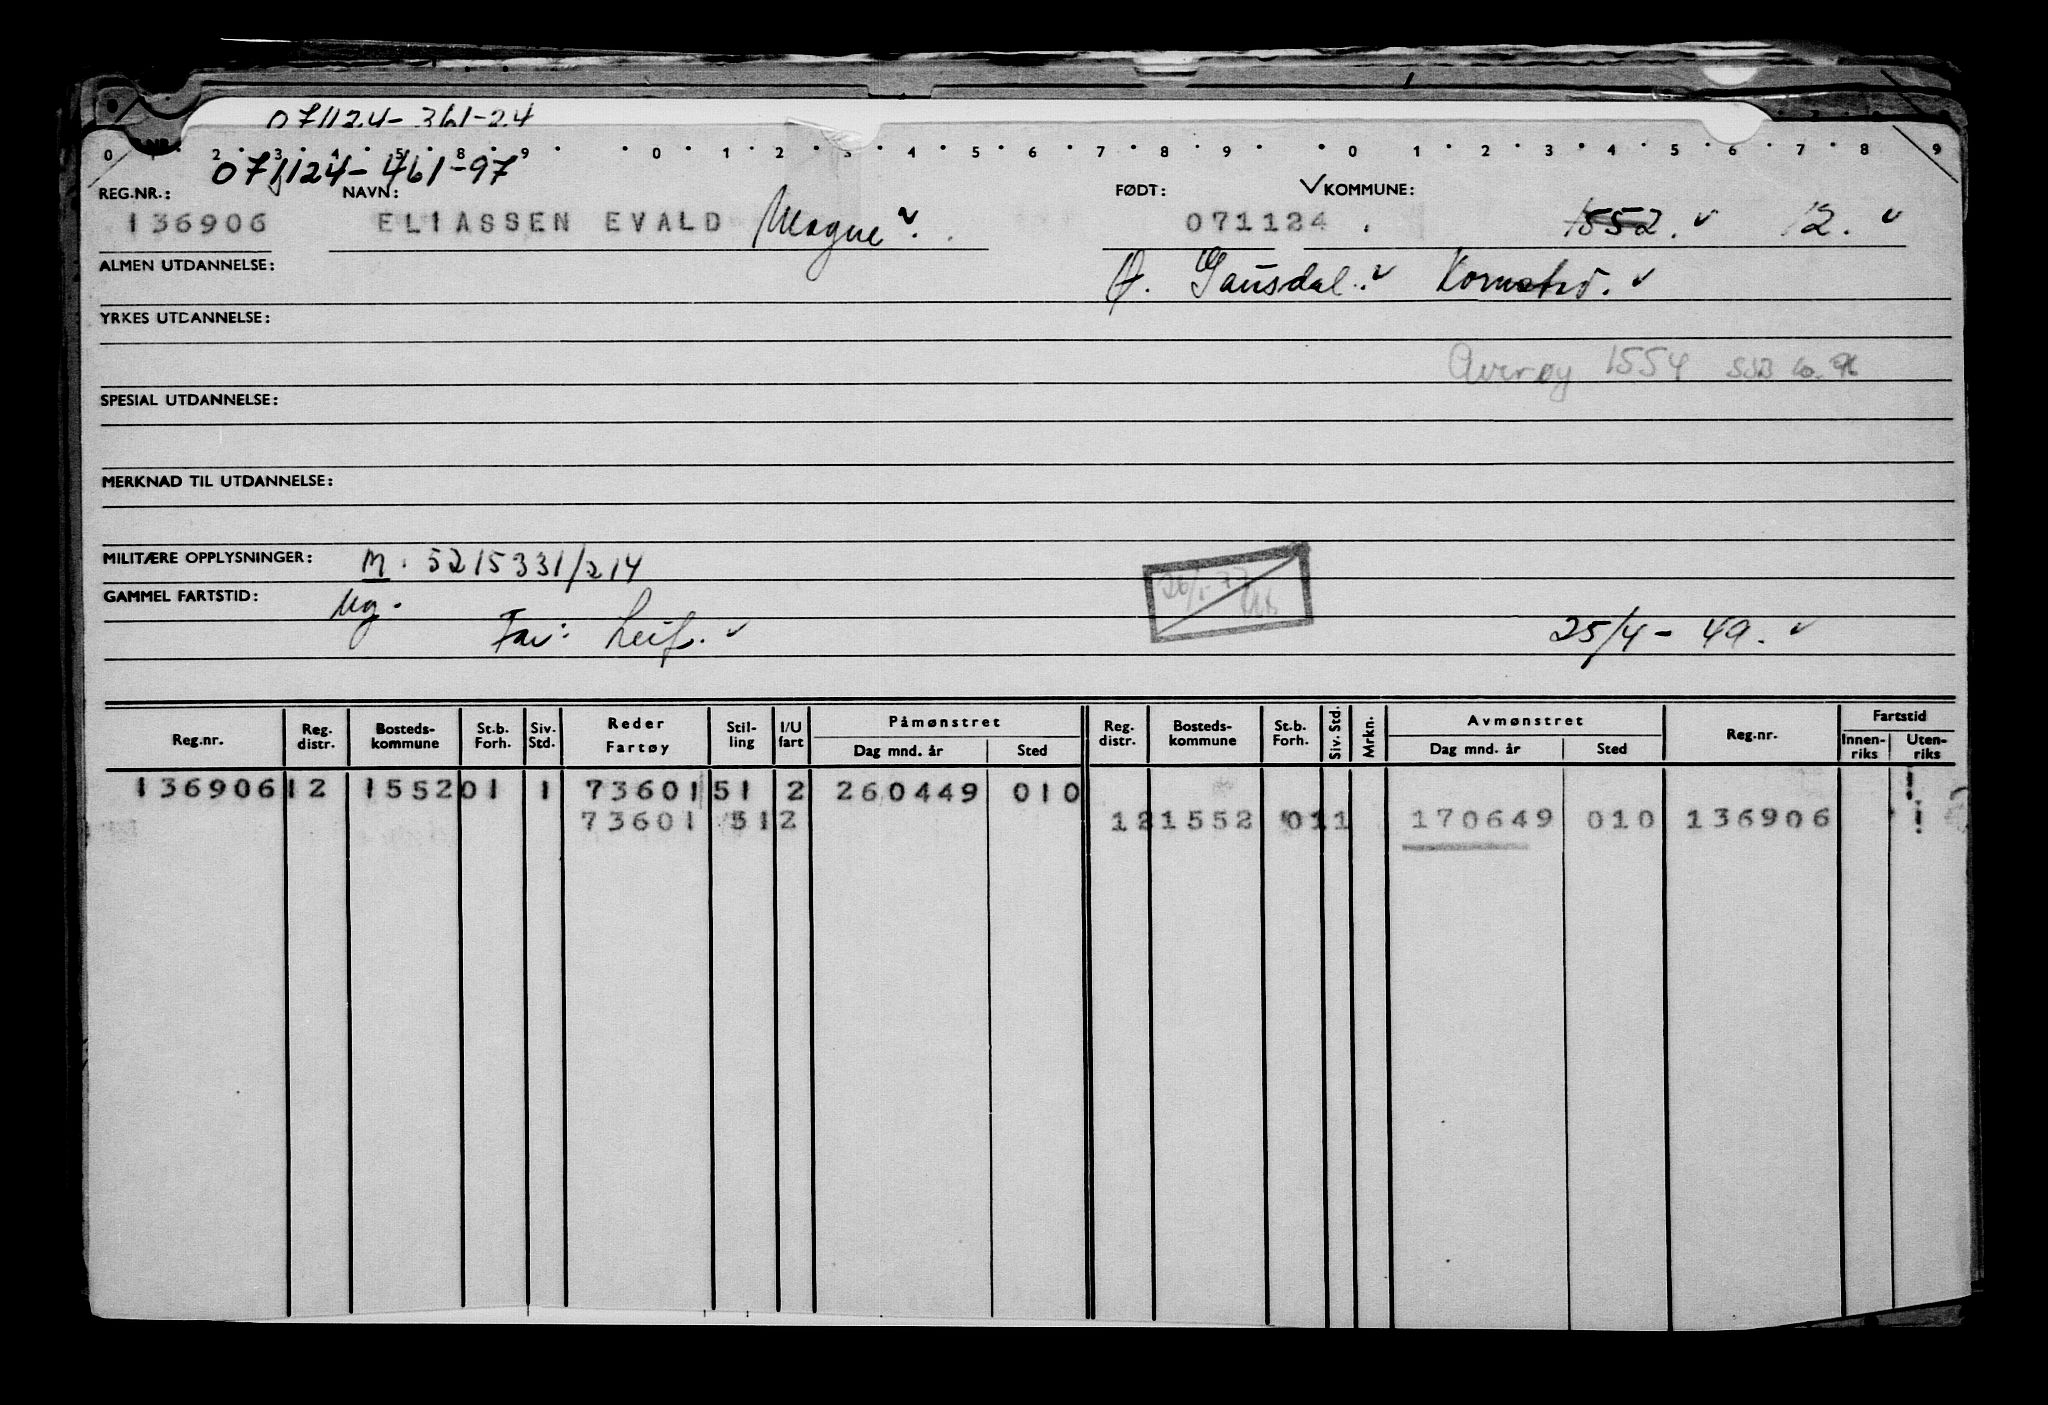 071124-361-24
0 1 2 3 4 5 8 9 0 1 2 3 4 5 6 7 8 9 0 1 2 3 4 5 6 7 8 9
071124-461-97
REG.NR.: NAVN: FØDT: ✓KOMMUNE:
136906 ELIASSEN EVALD Magne 071124 1552. ✓ 12. ✓
ALMEN UTDANNELSE: Ø. Gausdal. ✓ Kornstad. ✓
YRKES UTDANNELSE:
Averøy 1554 SSB
SPESIAL UTDANNELSE:
MERKNAD TIL UTDANNELSE:
MILITÆRE OPPLYSNINGER: M. 5215331/214
GAMMEL FARTSTID: Ug.
Far: Leif. ✓ 25/4-49. ✓
Reg.nr. Reg. distr. Bosteds-kommune St.b. Forh. Siv. Std. Reder Fartøy Stil-ling I/U fart Påmønstret Dag mnd. år Sted Reg. distr. Bosteds-kommune St.b. Forh. Siv. Std. Mrkn. Avmønstret Dag mnd. år Sted Reg.nr. Fartstid Innen-riks Uten-riks
136906 12 1552 01 1 73601 51 2 260449 010
73601 51 2 12 1552 01 1 170649 010 136906